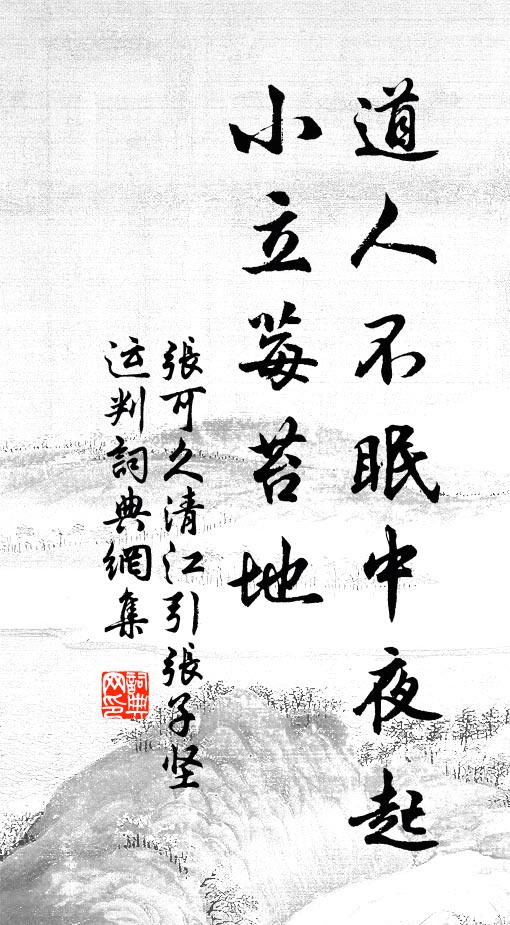 道人不眠中夜起
小立莓苔地
張可久清江引張子坚
运判詞典網集
詞典网印